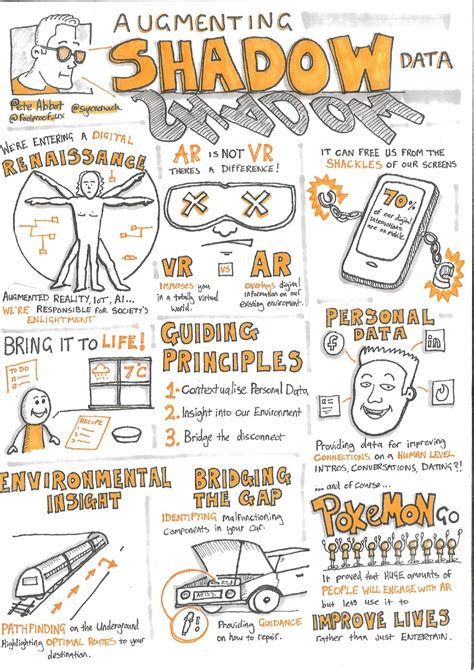 AUGMENTING
SHADOW DATA
SHADOW
Pete Abbot
@foolproof_ux
WE'RE ENTERING A DIGITAL
RENAISSANCE
AUGMENTED REALITY, IOT, AI...
WE'RE RESPONSIBLE FOR SOCIETY'S
ENLIGHTMENT
AR IS NOT VR
THERE'S A DIFFERENCE!
VR vs AR
Immerses you
in a totally virtual
world.
Overlays digital
information on our
existing enviroment.
IT CAN FREE US FROM THE
SHACKLES OF OUR SCREENS
70%
of our digital
interactions
are on mobile.
BRING IT TO LIFE!
TO DO
7°C
RECIPE
GUIDING
PRINCIPLES
1- Contextualise Personal Data
2. Insight into our Environment
3. Bridge the disconnect
PERSONAL
DATA
f
in
Providing data for improving
CONNECTIONS on a HUMAN LEVEL
INTROS, CONVERSATIONS, DATING?!
ENVIRONMENTAL
INSIGHT
PATHFINDING on the Underground
Highlighting OPTIMAL ROUTES to your
destination.
BRIDGING
THE GAP
IDENTIFYING malfunctioning
components in your car.
Providing GUIDANCE
on how to repair.
... and of course...
POKEMON GO
It proved that HUGE amounts of
PEOPLE WILL ENGAGE WITH AR
but lets use it to
IMPROVE LIVES
rather than just ENTERTAIN.